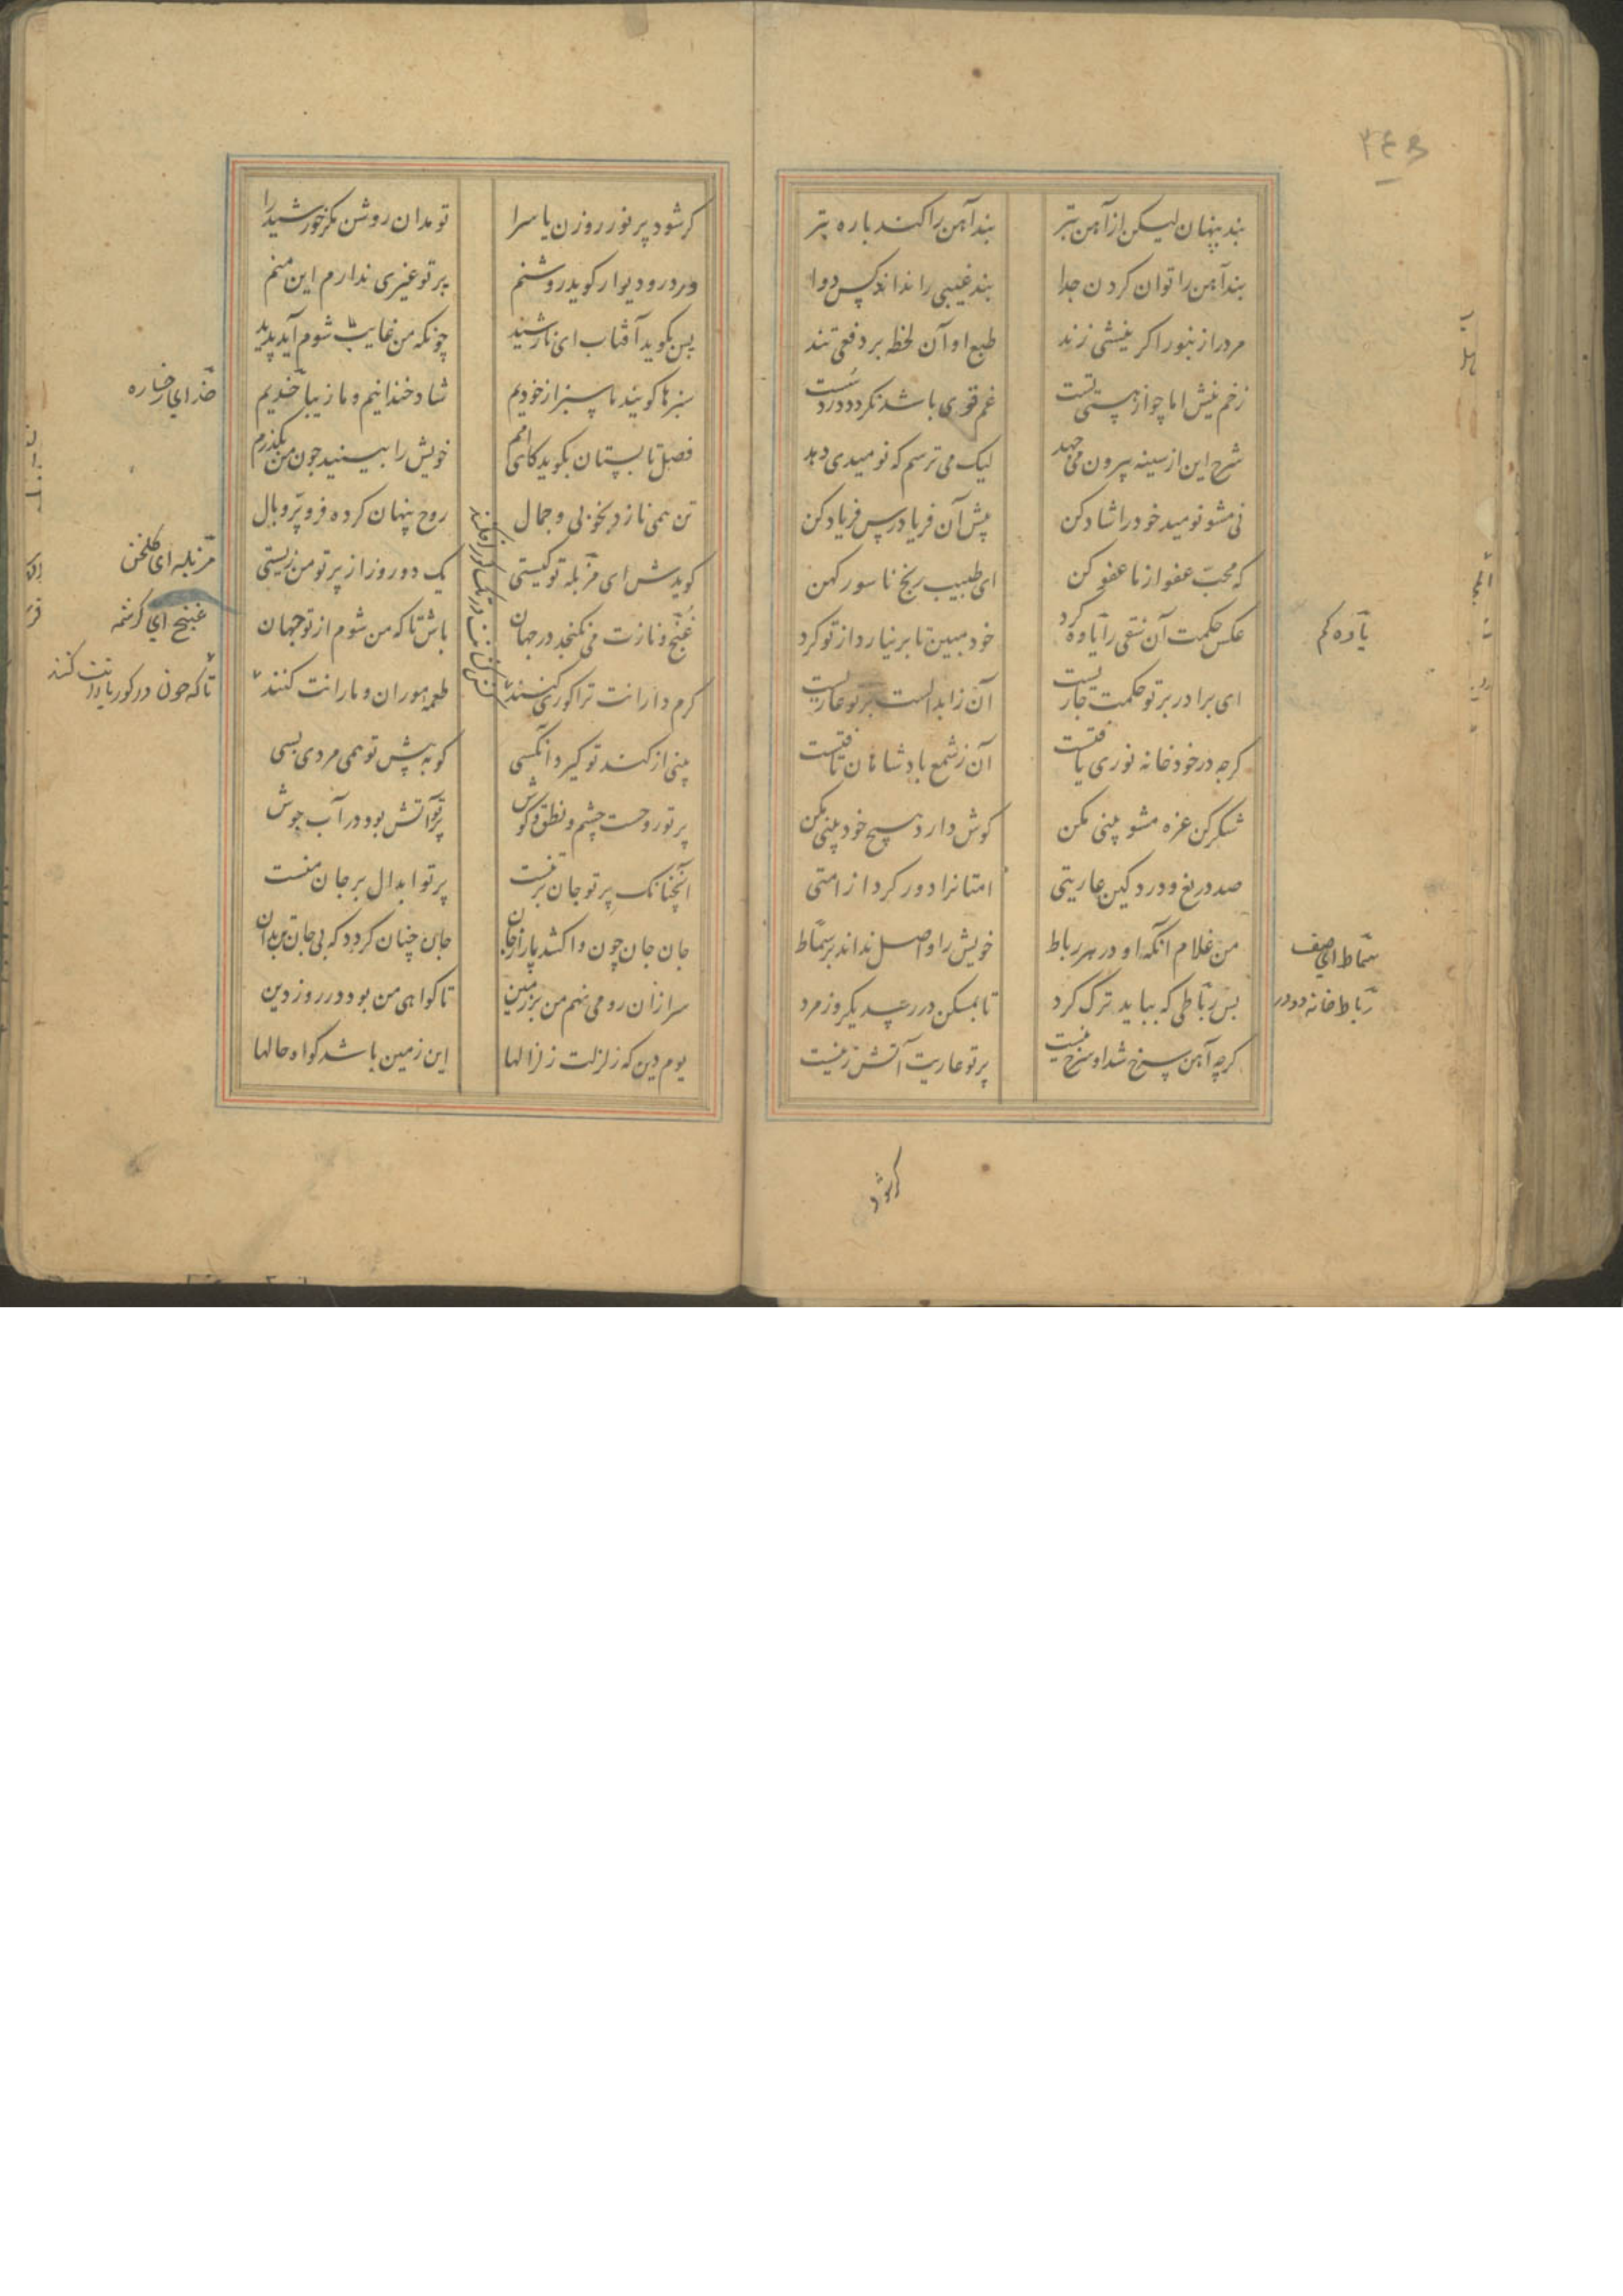 ۲۴۵
بند پنهان لیکن از آهن بتر
بند آهن را کند پاره تبر
بند آهن را توان کردن جدا
بند غیبی را نداند کس دوا
مرد را زنبور اکر نیشی زند
طبع او آن لحظه بر دفعی تند
زخم نیش اما چو از هستی تست
غم قوی باشد نکردد درد سست
شرح این از سینه بیرون می جهد
لیک می ترسم که نومیدی دهد
نی مشو نومید خود را شاد کن
پیش آن فریادرس فریاد کن
که محب عفو از ما عفو کن
ای طبیب رنج ناسور کهن
عکس حکمت آن شقی را یاوه کرد
خود مبین تا بر نیارد از تو کرد
ای برادر بر تو حکمت جاریست
آن ز ابدالست بر تو عاریست
کرچه در خود خانه نوری یافتست
آن ز شمع بادشاهان تافتست
شکر کن غره مشو بینی مکن
کوش دار و هیچ خود بینی مکن
صد دریغ و درد کین عاریتی
امتانرا دور کرد از امتی
من غلام آنکه او در هر رباط
خویش را واصل نداند بر سماط
بس رباطی که بباید ترک کرد
تا بمسکن در رسد یکروز مرد
کرچه آهن سرخ شد او سرخ نیست
پرتو عاریت آتش زنیست
یاوه کم
سماط ای صف
رباط خانه دو در
کر شود
کر شود پر نور روزن یا سرا
تو مدان روشن مکر خورشید را
ور در و دیوار کوید روشنم
پرتو غیری ندارم این منم
پس بکوید آفتاب ای نارشید
چونکه من غایب شوم آید پدید
سبزها کویند ما سبز از خودیم
شاد خندانیم و ما زیبا خدیم
فصل تابستان بکوید کای امم
خویش را بینید چون من بکذرم
تن همی نازد بخوبی و جمال
روح پنهان کرده فر و پر و بال
کویدش ای مزبله تو کیستی
یک دو روز از پرتو من زیستی
غنج و نازت می نکنجد در جهان
باش تا که من شوم از تو جهان
کرم دارانت ترا کوری کنند
طعمهٔ موران و مارانت کنند
بینی از کند تو کیرد آنکسی
کو به پیش تو همی مردی بسی
پرتو روحست چشم و نطق و کوش
پرتو آتش بود در آب جوش
آنچنانک پرتو جان بر تنست
پرتو ابدال بر جان منست
جان جان چون واکشد پا را ز جان
جان چنان کردد که بی جان تن بدان
سر از آن رو می نهم من بر زمین
تا کواهی من بود در روز دین
یوم دین که زلزلت زلزالها
این زمین باشد کواه حالها
خد ای رخساره
مزبله ای کلخن
غنج ای کرشمه
تا که چون در کور